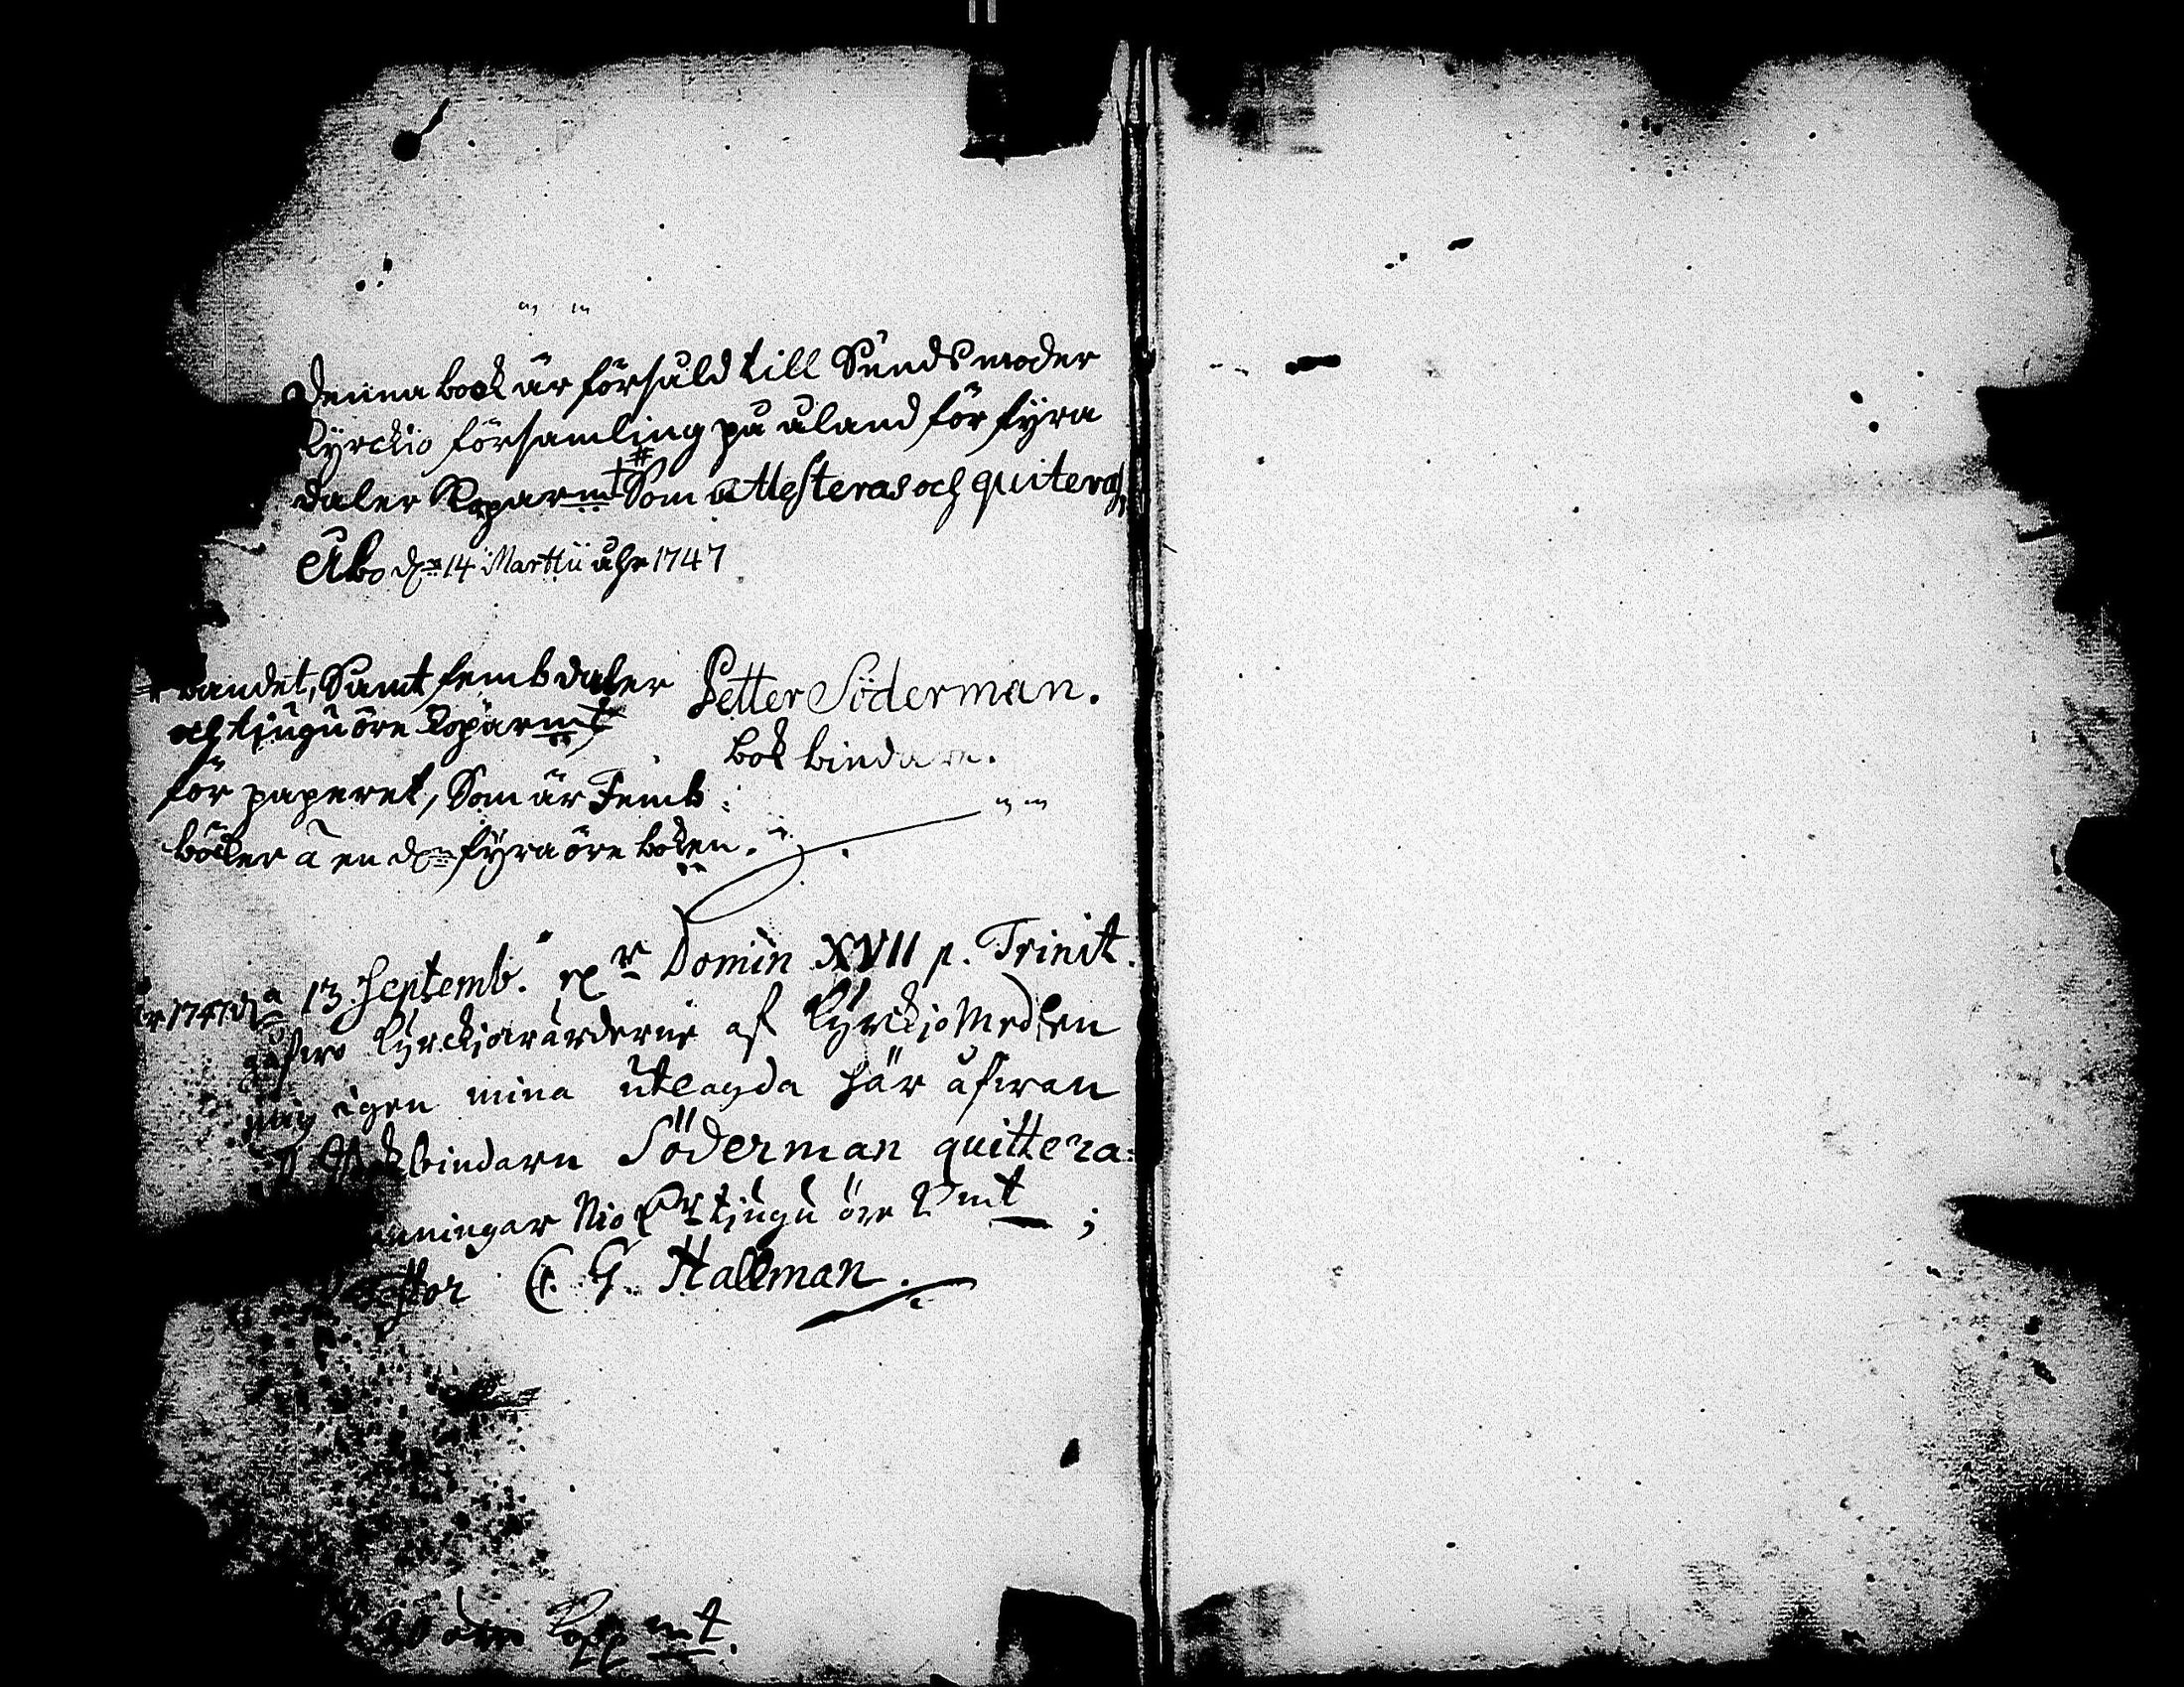 Denna book är försåld till Sunds moder
Kyrckio församling på åland för fyra
daler Koparmt # Som attesteras och quiteras
Åbo dn 14 Martii åhr 1747
# bandet, Samt femb daler
och tiugu öre Koparmt
för paperet, Som är Femb
böcker â en dr fyra öre boken.
Petter Söderman.
bok bindare.
1747 d. 13 Septemb. Domin XVII p. Trinit.
gåfwo Kyrckiowärderne af Kyrckjo Medlen
mig igen mina utlagda här åfwan
Bokbindarn Söderman quittera-
penningar Nio dr tiugu öre Kmt;
Pastor C. G. Hallman.
öre Kopp mt.